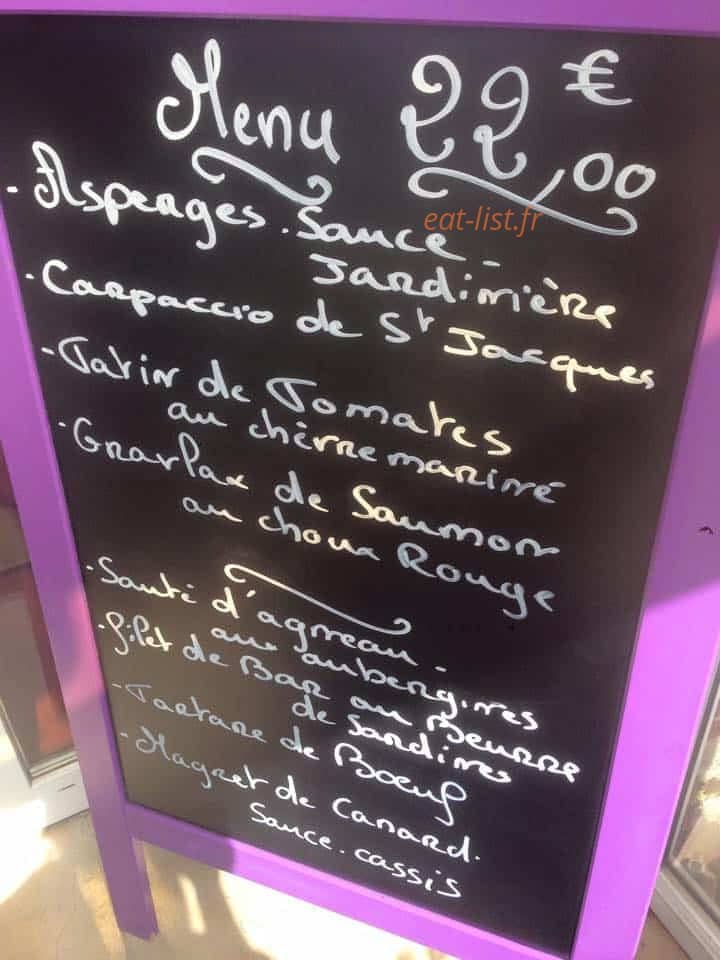 Menu 22,00 €
eat-list.fr
- Asperges. Sauce -
Jardinière
- Carpaccio de St Jacques
- Tatin de Tomates
au chèvre mariné
- Gravlax de Saumon
au choux Rouge
- Sauté d'agneau -
aux aubergines
- filet de Bar au Beurre
de Sardines
- Tartare de Boeuf
- Magret de Canard.
Sauce. cassis